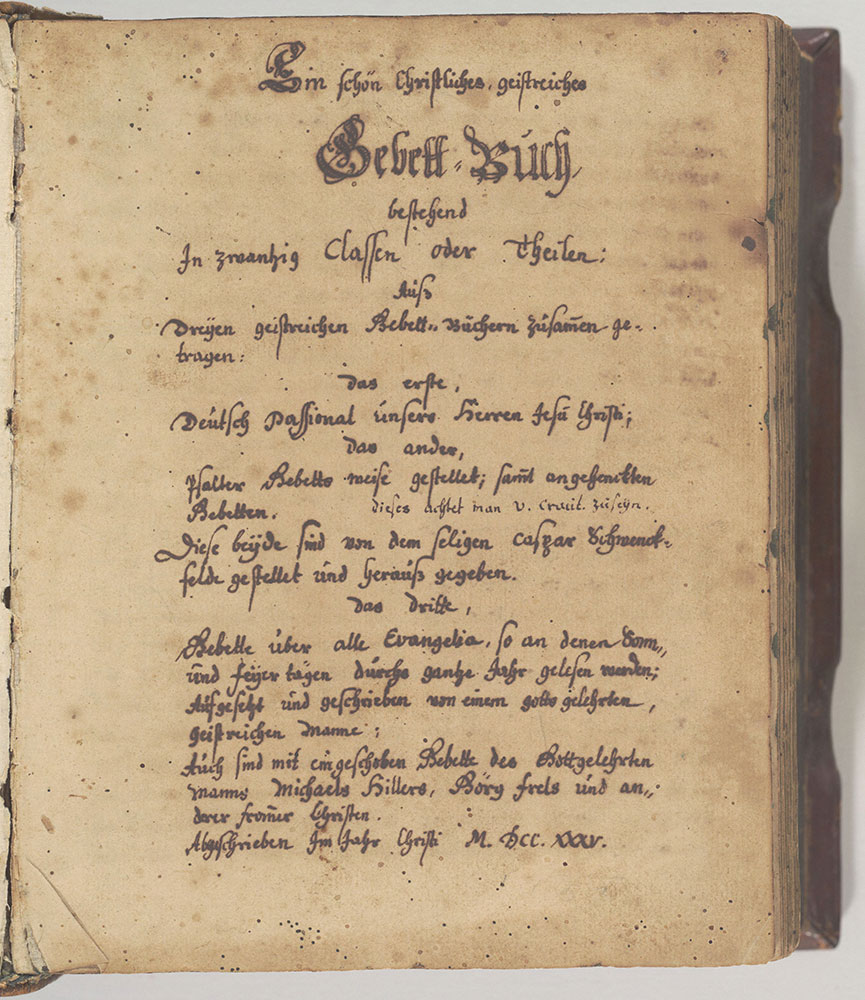 Ein schön Christliches, geistreiches
Gebett-Buch,
bestehend
In zwantzig Classen oder Theilen:
Auß
Dreyen geistreichen Gebett-Büchern zusam̅en ge-
tragen:
das erste,
Deutsch Passional unsers Herren Jesu Christi;
das ander,
Psalter Gebetts weise gestellet; sam̅t angehenckten
Gebetten. dieses achtet man v. Craut. zuseyn.
Diese beyde sind von dem seligen Caspar Schwenck-
felde gestellet und herauß gegeben.
das dritte,
Gebette über alle Evangelia, so an denen Sonn-
und Feyertägen durchs gantze Jahr gelesen werden;
Aufgesetzt und geschrieben von einem gottsgelehrten,
geistreichen Manne;
Auch sind mit eingeschoben Gebette des Gottgelehrten
Manns Michaels Hillers, Görg Frels und an-
drer from̅er Christen.
Abgeschrieben Im Jahr Christi M. DCC. XXXV.